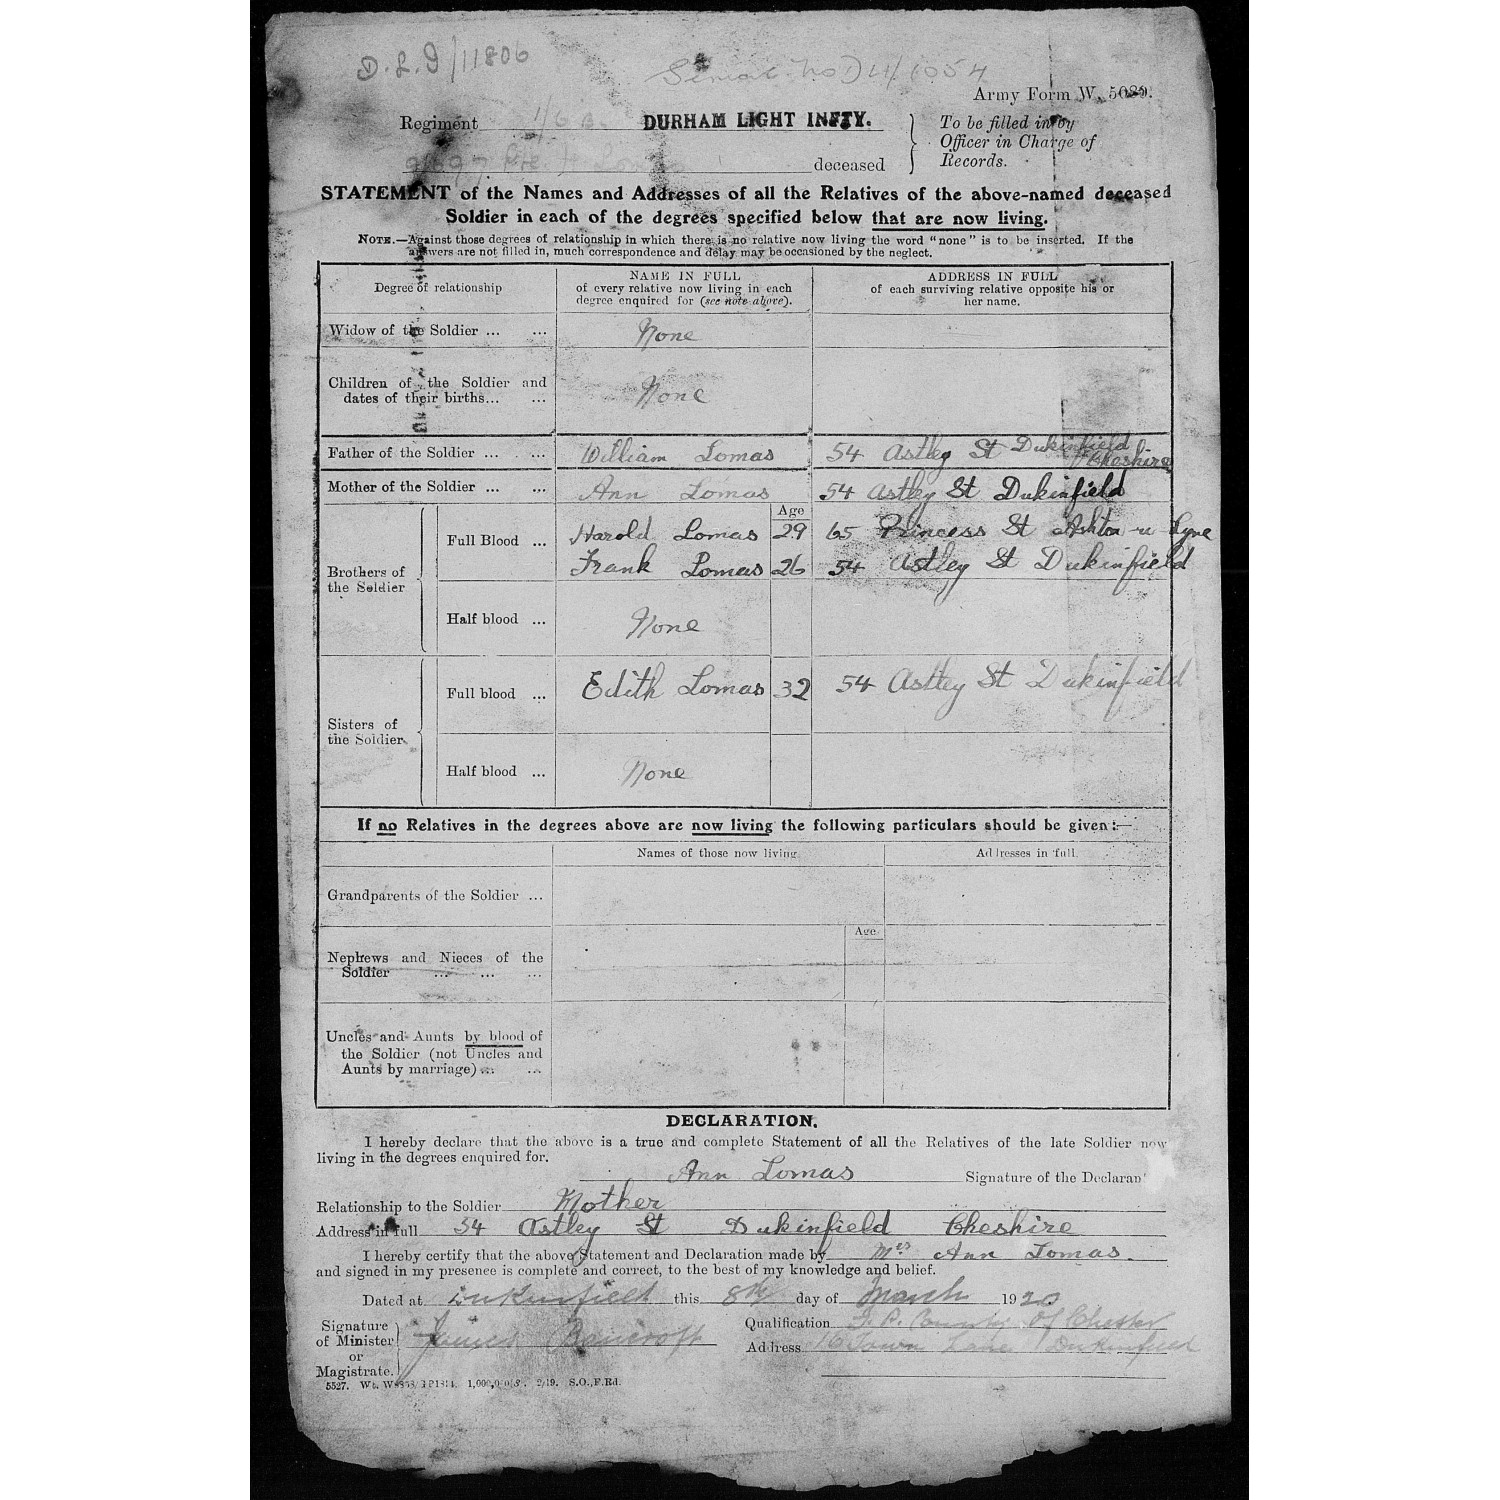 D.L.I/11806
Serial No D4/1054
Army Form W. 5080.
Regiment 1/6 B. DURHAM LIGHT INFTY.
To be filled in by
Officer in Charge of
Records.
Pte H Lomas deceased
STATEMENT of the Names and Addresses of all the Relatives of the above-named deceased
Soldier in each of the degrees specified below that are now living.
NOTE.—Against those degrees of relationship in which there is no relative now living the word "none" is to be inserted. If the
answers are not filled in, much correspondence and delay may be occasioned by the neglect.
Degree of relationship
NAME IN FULL
of every relative now living in each
degree enquired for (see note above).
ADDRESS IN FULL
of each surviving relative opposite his or
her name.
Widow of the Soldier ... ... None
Children of the Soldier and
dates of their births... ... None
Father of the Soldier ... ... William Lomas 54 Astley St Dukinfield
Cheshire
Mother of the Soldier ... ... Ann Lomas 54 Astley St Dukinfield
Age
Brothers of
the Soldier
Full Blood ... Harold Lomas 29 65 Princess St Ashton-u-Lyne
Frank Lomas 26 54 Astley St Dukinfield
Half blood ... None
Sisters of
the Soldier
Full blood ... Edith Lomas 32 54 Astley St Dukinfield
Half blood ... None
If no Relatives in the degrees above are now living the following particulars should be given:—
Names of those now living. Addresses in full.
Grandparents of the Soldier ...
Age
Nephews and Nieces of the
Soldier ... ... ...
Uncles and Aunts by blood of
the Soldier (not Uncles and
Aunts by marriage)... ...
DECLARATION.
I hereby declare that the above is a true and complete Statement of all the Relatives of the late Soldier now
living in the degrees enquired for.
Ann Lomas Signature of the Declarant
Relationship to the Soldier Mother
Address in full 54 Astley St Dukinfield Cheshire
I hereby certify that the above Statement and Declaration made by Mrs Ann Lomas.
and signed in my presence is complete and correct, to the best of my knowledge and belief.
Dated at Dukinfield this 8th day of March 1920
Signature
of Minister
or
Magistrate.
James Bancroft
Qualification J.P. County of Chester
Address 16 Town Lane Dukinfield
5527. 1,000,000. 2/19. S.O.,F.Rd.